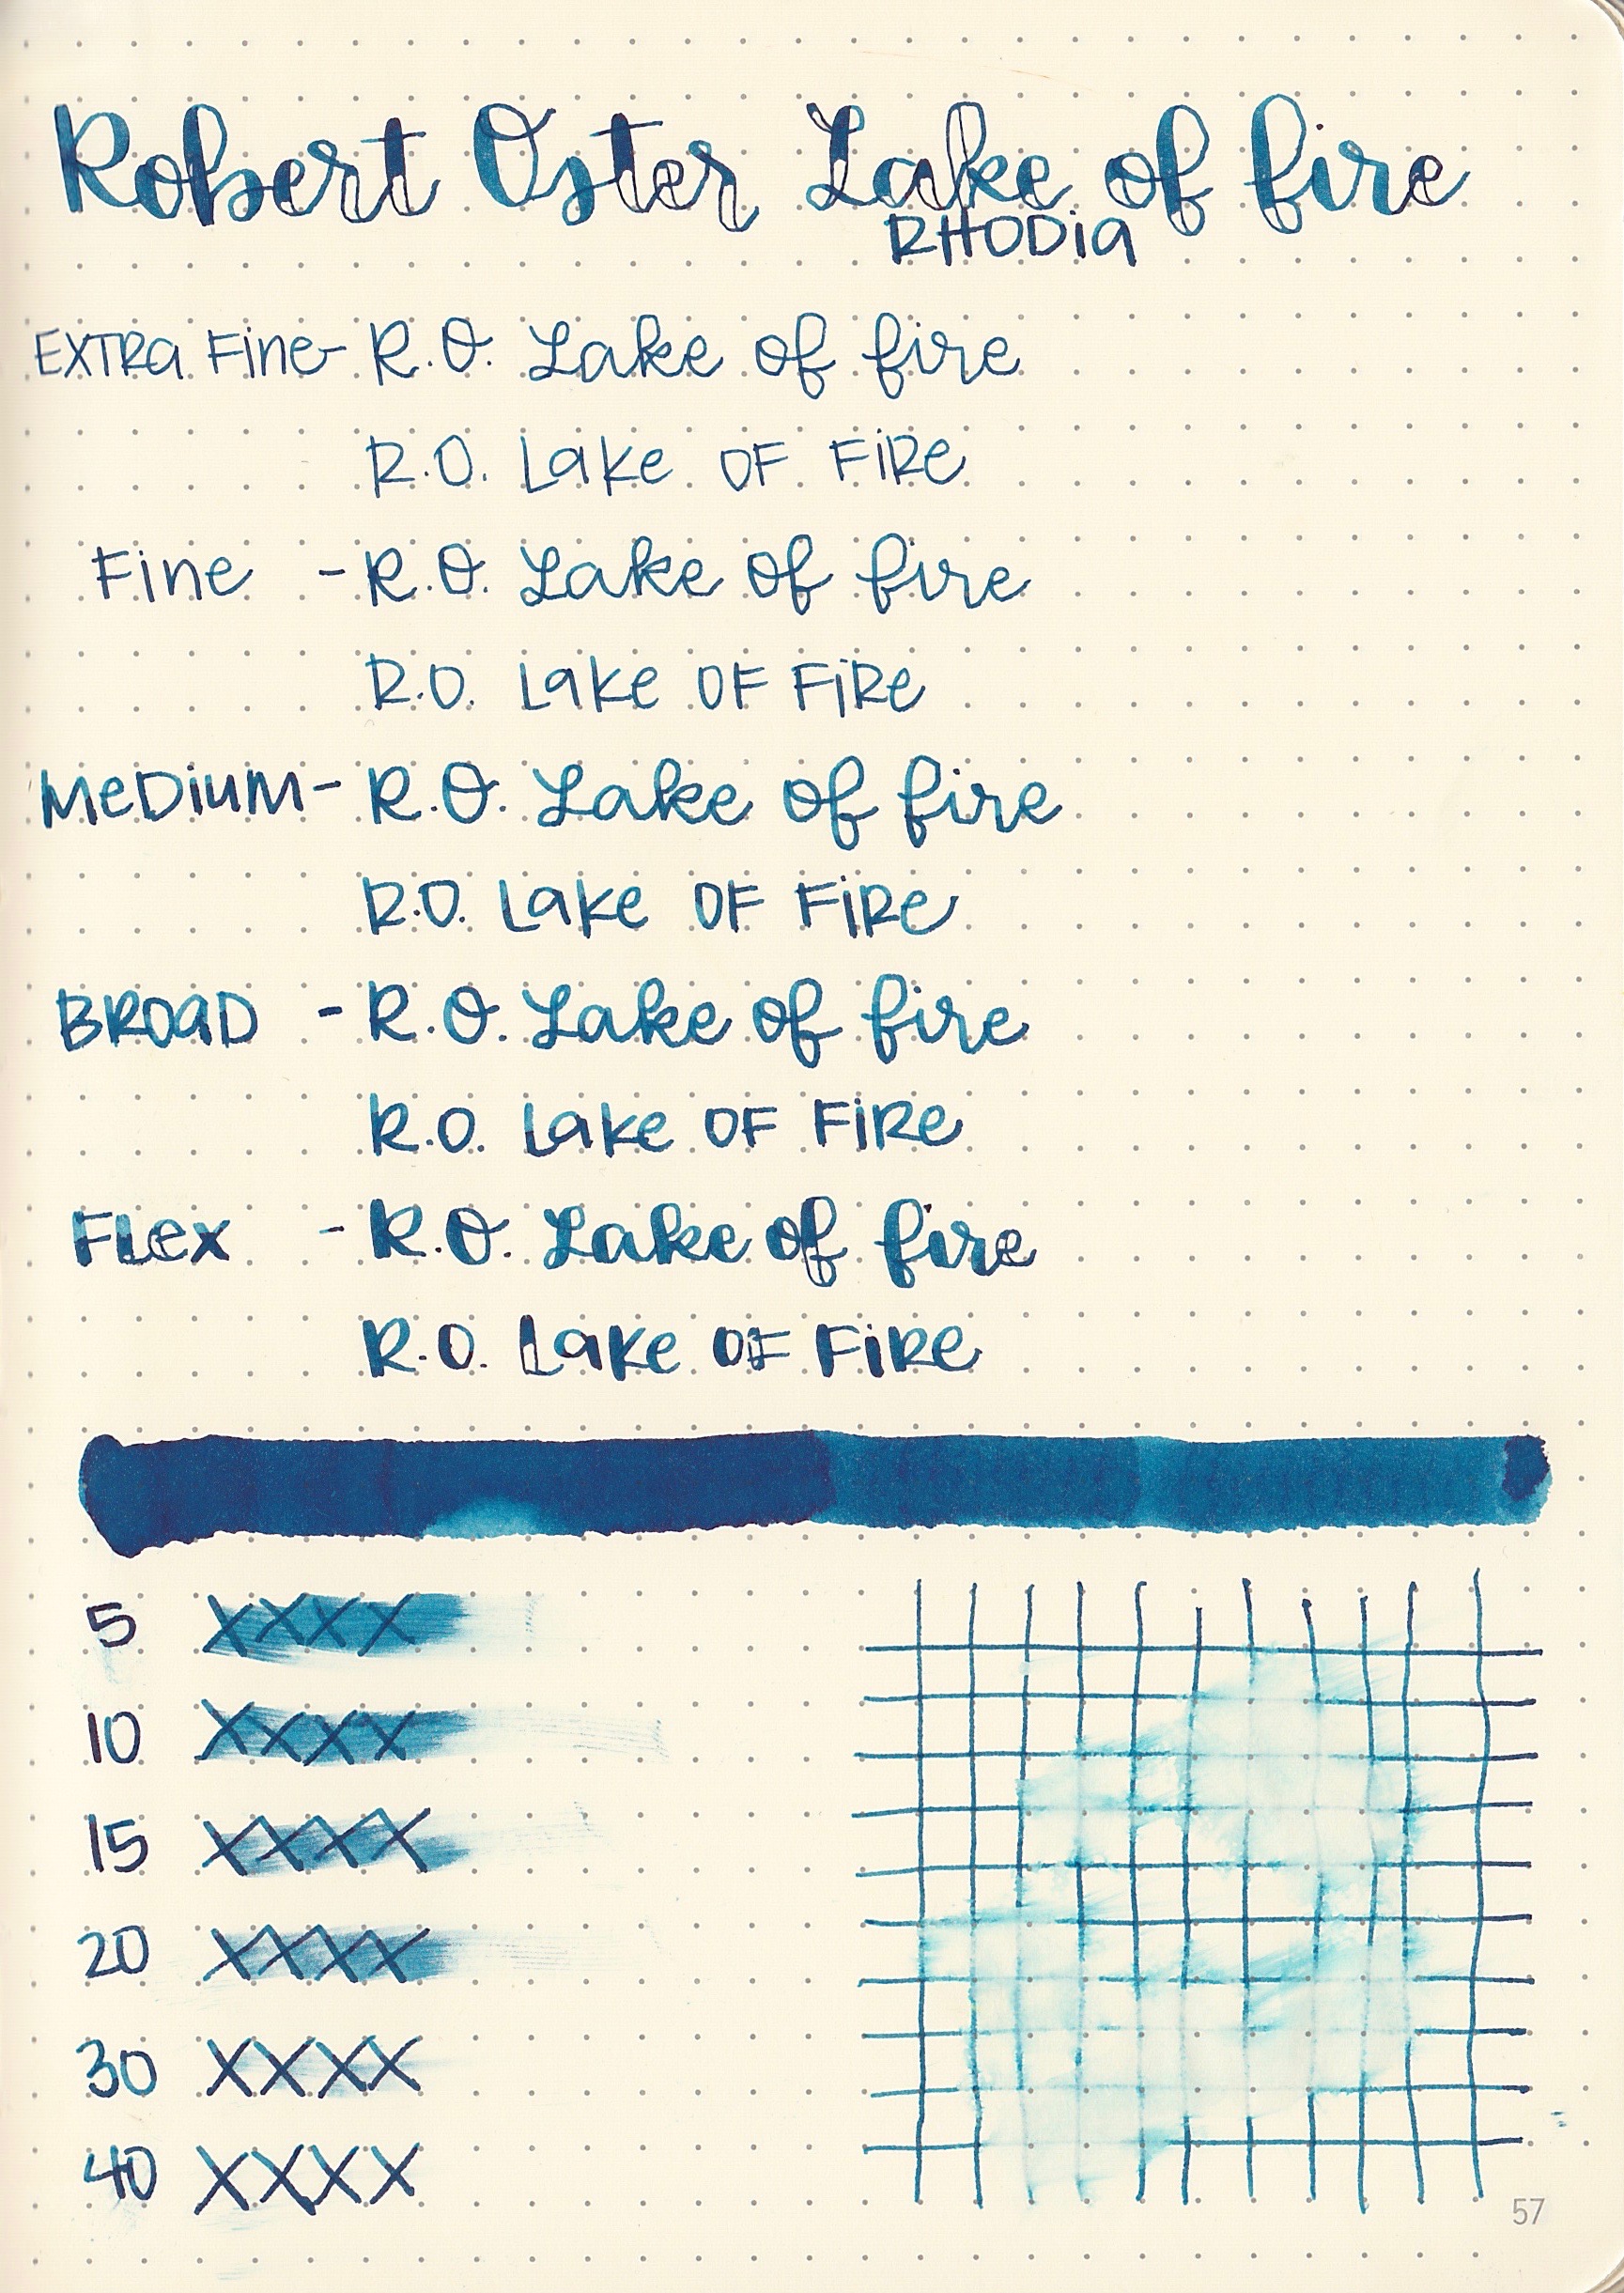 Robert Oster Lake of fire
RHODIA
EXTRA FINE - R.O. Lake of fire
R.O. Lake OF FIRE
Fine - R.O. Lake of fire
R.O. Lake OF FIRE
MEDIUM - R.O. Lake of fire
R.O. Lake OF FIRE
BROAD - R.O. Lake of fire
R.O. Lake OF FIRE
FLEX - R.O. Lake of fire
R.O. Lake OF FIRE
5 XXXX
10 XXXX
15 XXXX
20 XXXX
30 XXXX
40 XXXX
57